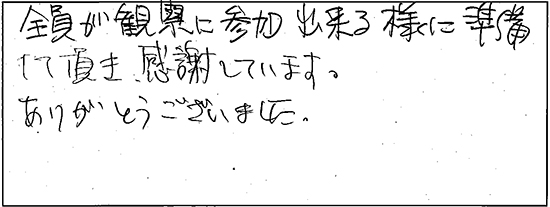 全員が観察に参加出来る様に準備
して頂き、感謝しています。
ありがとうございました。